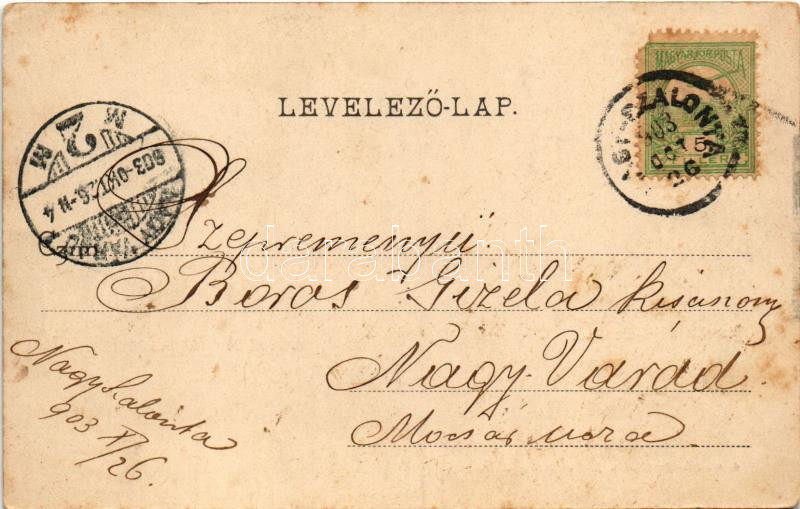 LEVELEZŐ-LAP.
MAGYAR KIR. POSTA
SZALONTA
903
OKT
26
5
903 OKT 26
Czím:
Szepreményü
Boros Gizela kisasszony
Nagy-Várad
Nagyszalonta
903 X/26.
darabanth